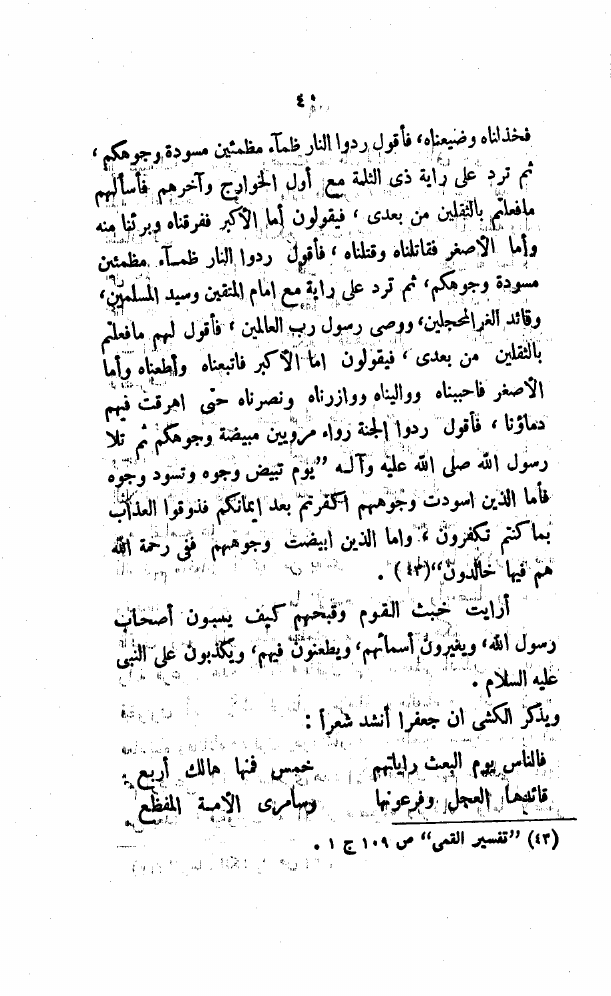 ٤٠
فخذلناه وضيعناه، فأقول ردوا النار ظمآء مظمئين مسودة وجوهكم،
ثم ترد على راية ذى الثلمة مع أول الخوارج وآخرهم فأسألهم
مافعلتم بالثقلين من بعدى، فيقولون أما الأكبر ففرقناه وبرئنا منه
وأما الأصغر فقاتلناه وقتلناه، فأقول ردوا النار ظمآء مظمئين
مسودة وجوهكم، ثم ترد على راية مع امام المتقين وسيد المسلمين،
وقائد الغر المحجلين، ووصى رسول رب العالمين، فأقول لهم مافعلتم
بالثقلين من بعدى، فيقولون اما الأكبر فاتبعناه وأطعناه وأما
الأصغر فاحببناه وواليناه ووازرناه ونصرناه حتى اهرقت فيهم
دماؤنا، فأقول ردوا الجنة رواء مرويين مبيضة وجوهكم ثم تلا
رسول الله صلى الله عليه وآله "يوم تبيض وجوه وتسود وجوه
فأما الذين اسودت وجوههم اكفرتم بعد ايمانكم فذوقوا العذاب
بما كنتم تكفرون، واما الذين ابيضت وجوههم ففى رحمة الله
هم فيها خالدون"(٤٣).
أرايت خبث القوم وقبحهم كيف يسبون أصحاب
رسول الله، ويغيرون أسمائهم، ويطعنون فيهم، ويكذبون على النبى
عليه السلام.
ويذكر الكشى ان جعفرا أنشد شعراً:
فالناس يوم البعث راياتهم خمس فمنها هالك أربع
قائدها العجل وفرعونها وسامرى الأمة المفظع
(٤٣) "تفسير القمى" ص ١٠٩ ج ١.